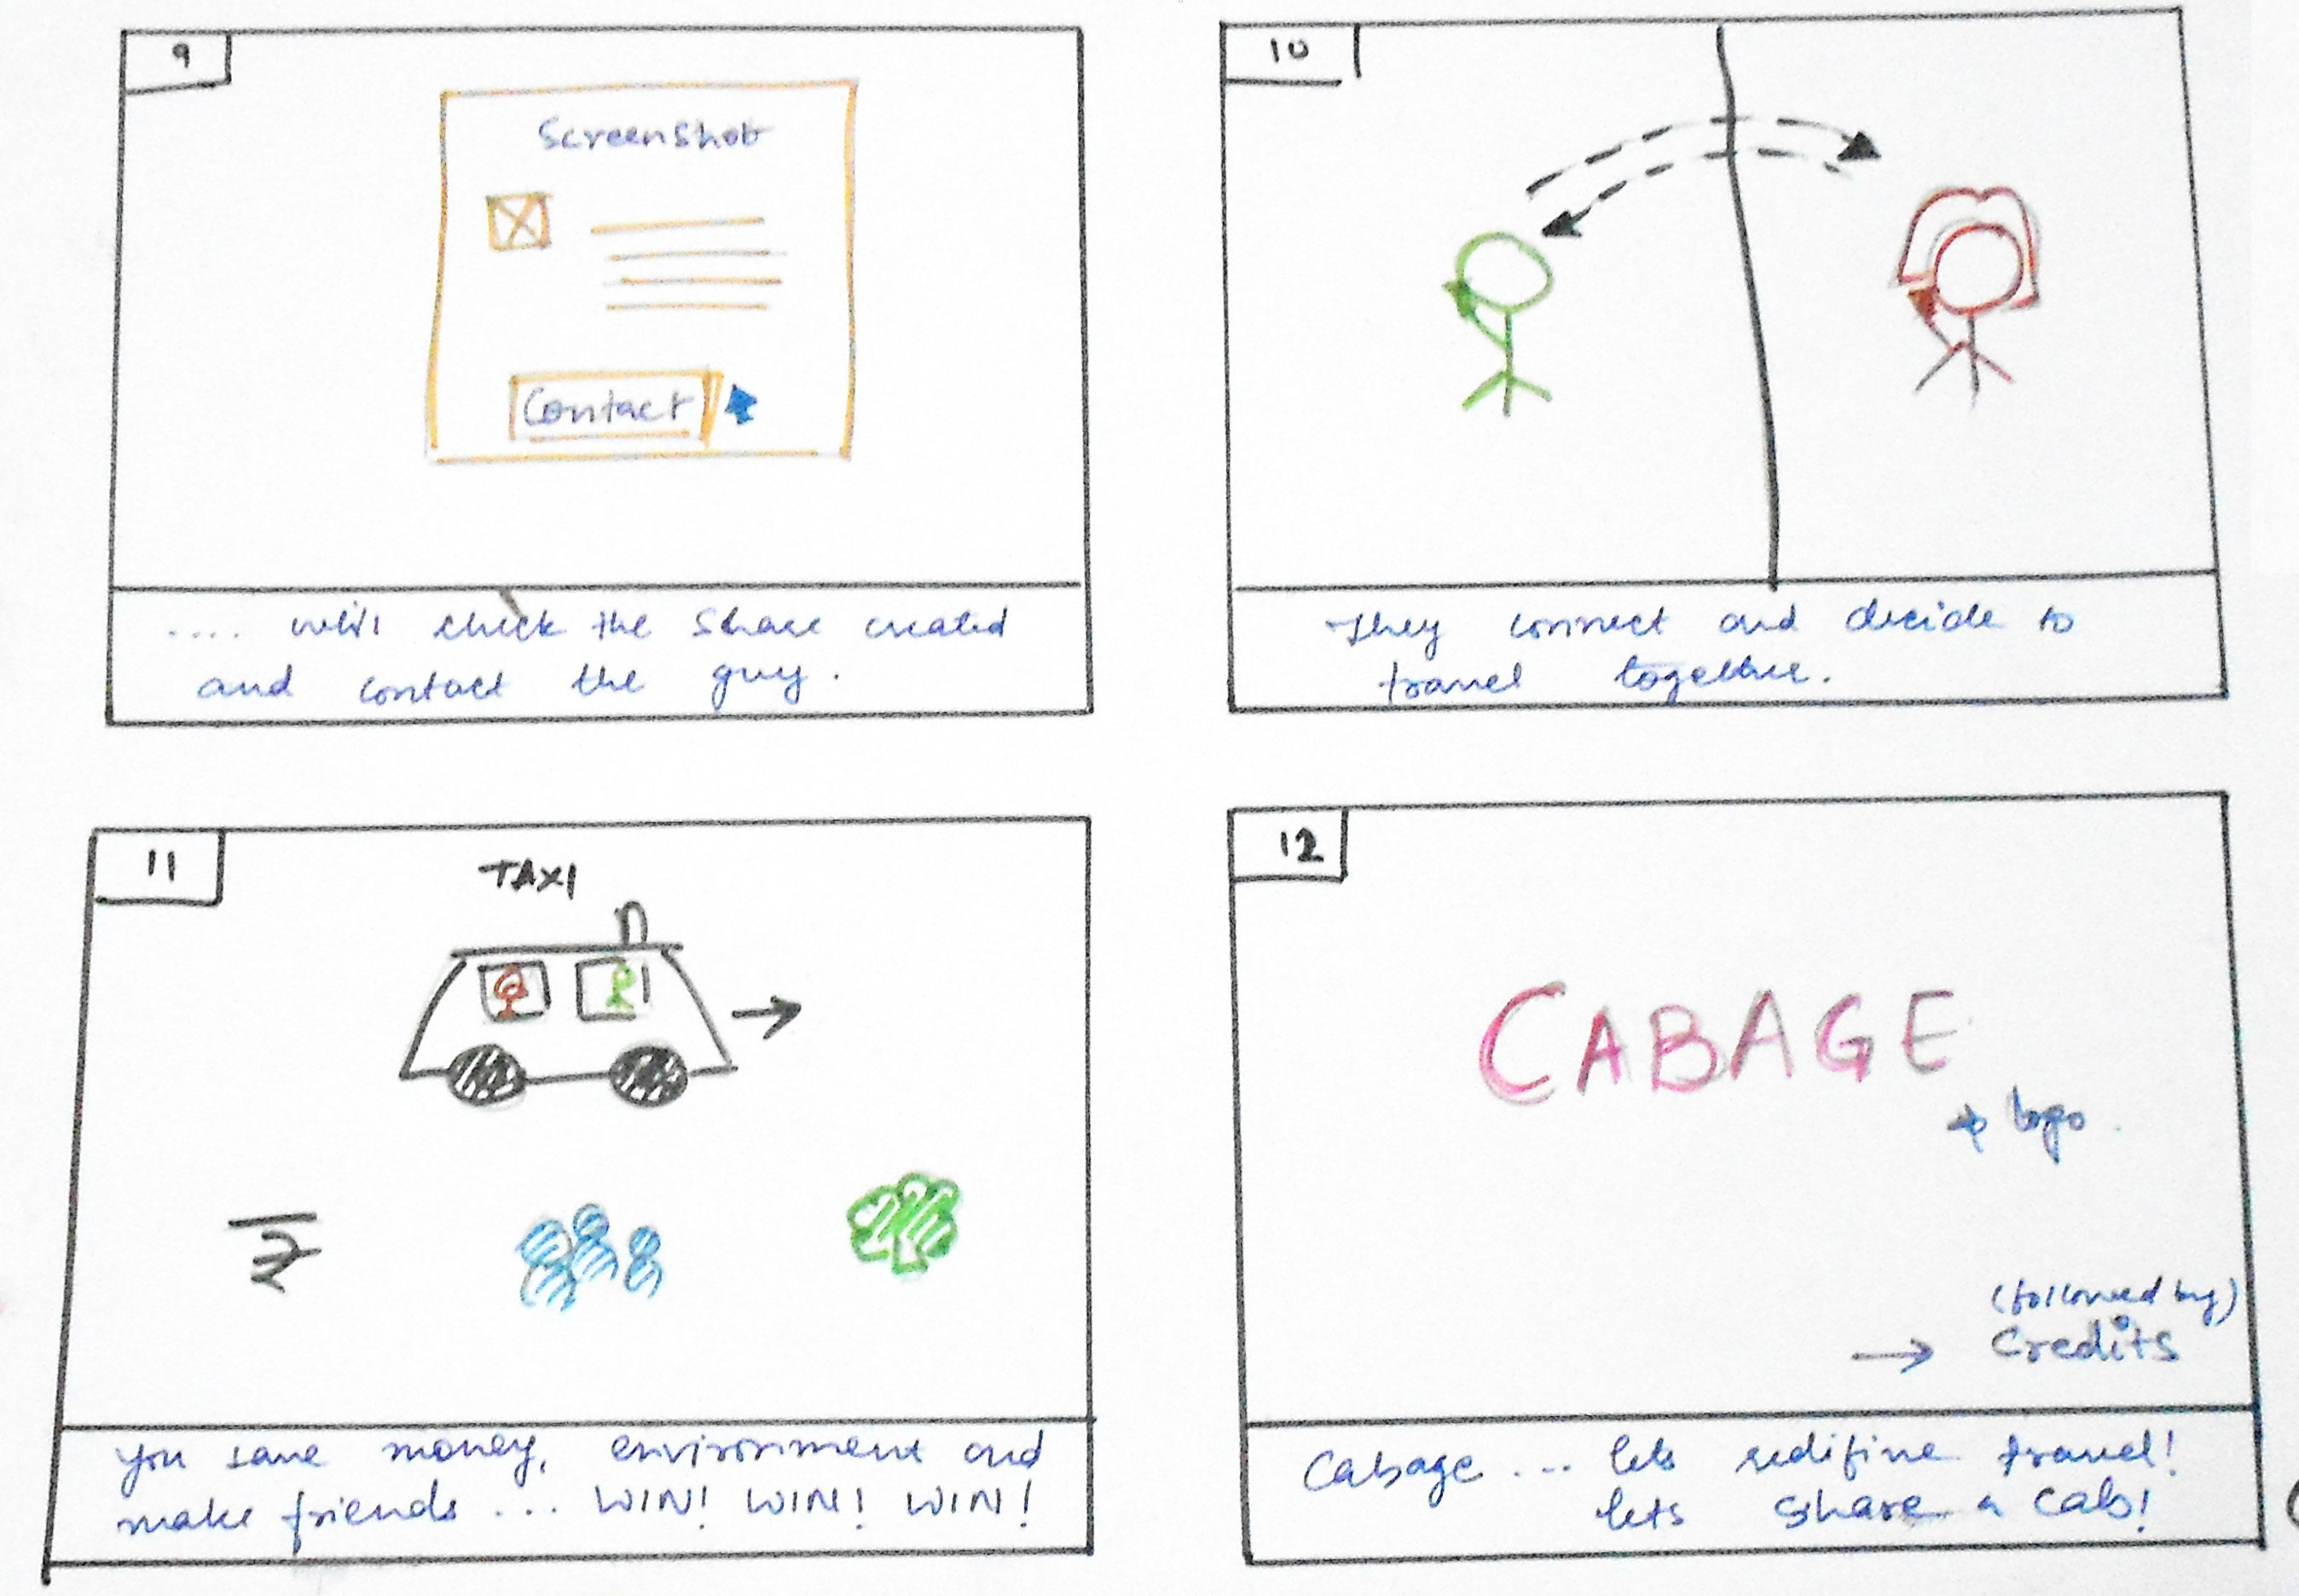 9
Screenshot
Contact
.... will check the Share created
and contact the guy.
10
They connect and decide to
travel together.
11
TAXI
₹
You save money, environment and
make friends ... WIN! WIN! WIN!
12
CABAGE
+ logo.
(followed by)
→ Credits
Cabage ... lets redifine travel!
lets share a cab!